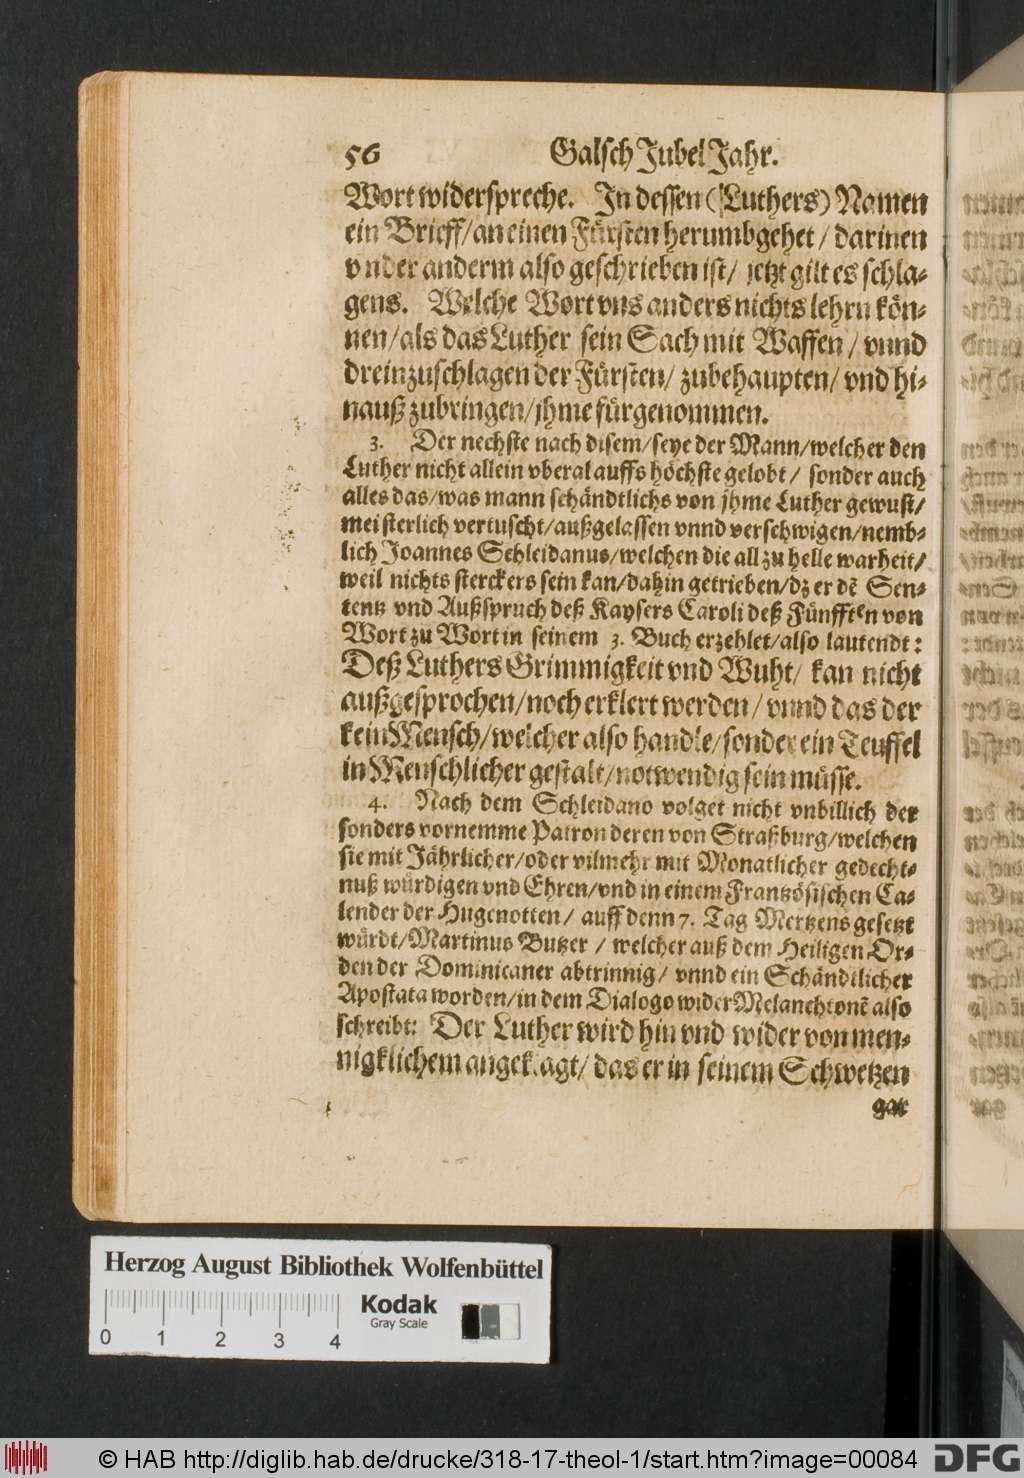 56 Galsch Jubel Jahr.
Wort widerspreche. In dessen (Luthers) Namen
ein Brieff/an einen Fürsten herumbgehet/ darinen
vnder anderm also geschrieben ist/ jetzt gilt es schla-
gens. Welche Wort vns anders nichts lehrn kön-
nen/als das Luther sein Sach mit Waffen/ vnnd
dreinzuschlagen der Fürsten/ zubehaupten/ vnd hi-
nauß zubringen/jhme fürgenommen.
3. Der nechste nach disem/seye der Mann/welcher den
Luther nicht allein vberal auffs höchste gelobt/ sonder auch
alles das/was mann schändtlichs von jhme Luther gewust/
meisterlich vertuscht/außgelassen vnnd verschwigen/nemb-
lich Joannes Schleidanus/welchen die all zu helle warheit/
weil nichts sterckers sein kan/dahin getrieben/dz er dē Sen-
tentz vnd Außspruch deß Kaysers Caroli deß Fünfften von
Wort zu Wort in seinem 3. Buch erzehlet/also lautendt:
Deß Luthers Grimmigkeit vnd Wuht/ kan nicht
außgesprochen/noch erklert werden/ vnnd das der
kein Mensch/welcher also handle/sonder ein Teuffel
in Menschlicher gestalt/notwendig sein müsse.
4. Nach dem Schleidano volget nicht vnbillich der
sonders vornemme Patron deren von Straßburg/welchen
sie mit Jährlicher/oder vilmehr mit Monatlicher gedecht-
nuß würdigen vnd Ehren/vnd in einem Frantzösischen Ca-
lender der Hugenotten/ auff denn 7. Tag Mertzens gesetzt
würdt/Martinus Butzer/ welcher auß dem Heiligen Or-
den der Dominicaner abtrinnig/ vnnd ein Schändtlicher
Apostata worden/in dem Dialogo wider Melanchtonē also
schreibt: Der Luther wird hin vnd wider von men-
nigklichem angeklagt/ das er in seinem Schwetzen
gar
Herzog August Bibliothek Wolfenbüttel
Kodak
Gray Scale
0 1 2 3 4
© HAB http://diglib.hab.de/drucke/318-17-theol-1/start.htm?image=00084
DFG